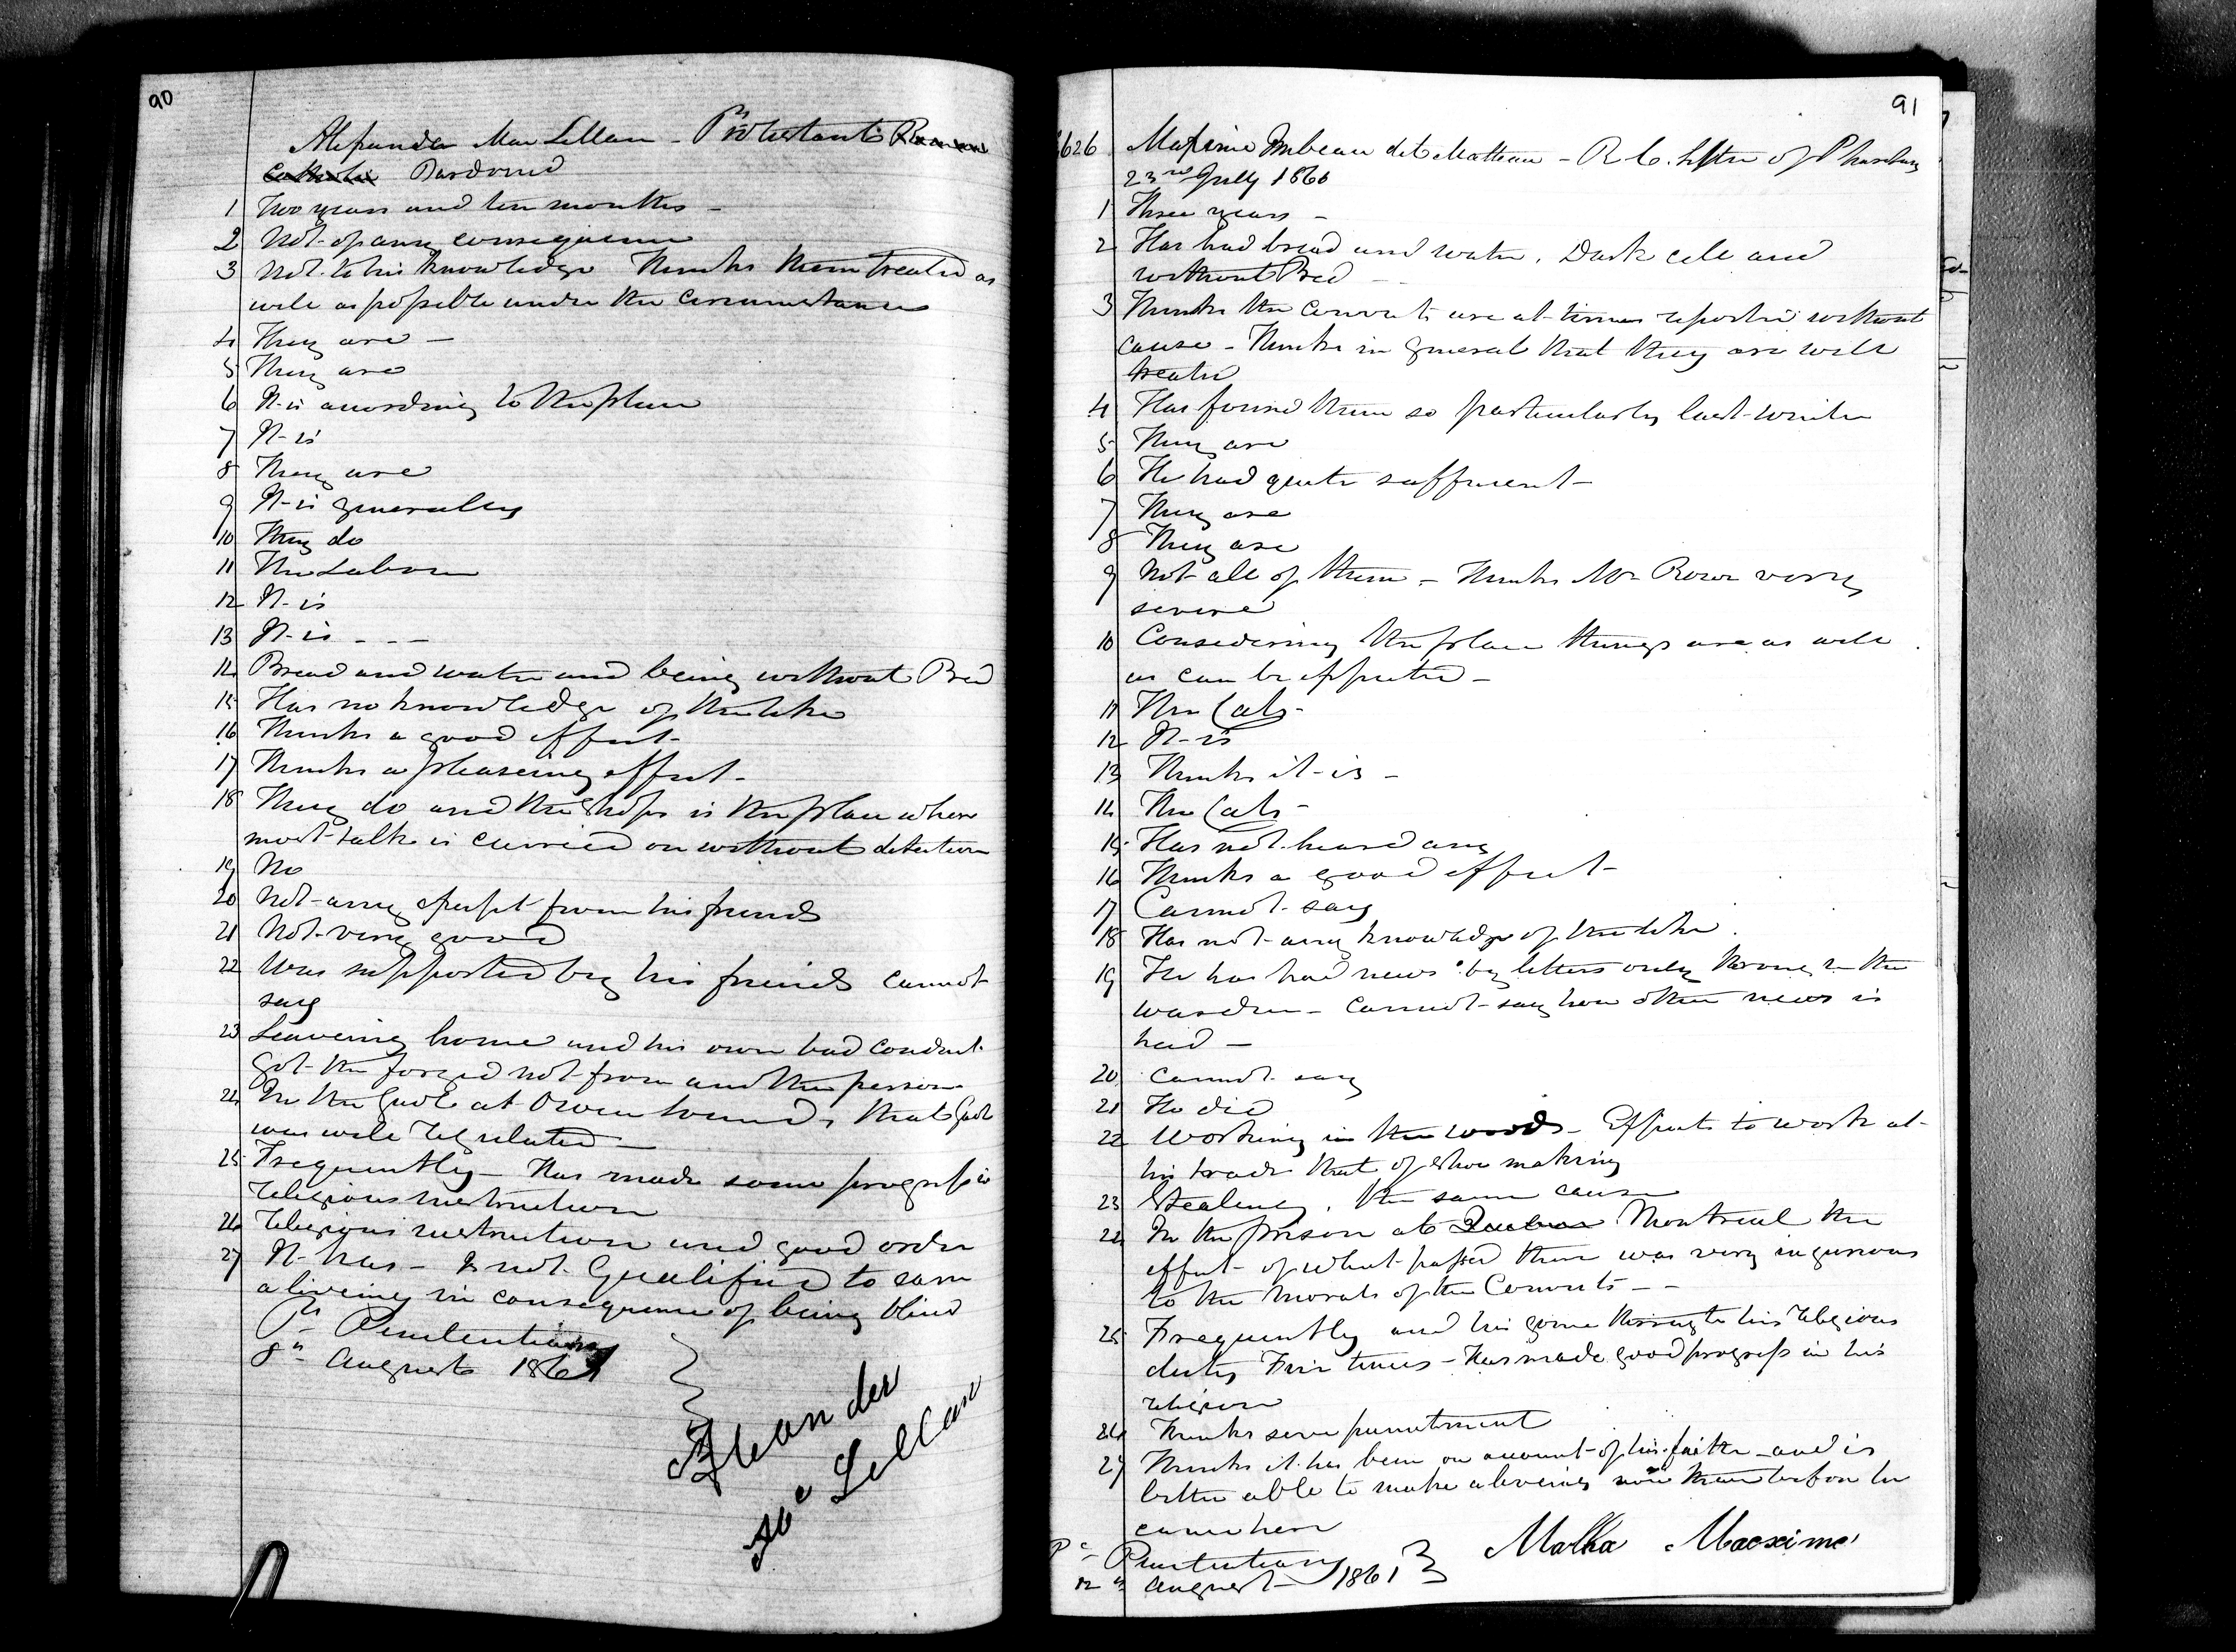 90
Alexander MacLellan - Protestant Roman
Catholic Pardoned
1 Two years and ten months -
2 Not of any consequence
3 Not to his knowledge Thinks them treated as
well as possible under the circumstances
4 They are -
5 They are
6 It is according to the place
7 It is
8 They are
9 It is generally
10 They do
11 The Labour
12 It is
13 It is - - -
14 Bread and water and being without Bed
15 Has no knowledge of the like
16 Thinks a good effect
17 Thinks a pleaseing effect -
18 They do and the Shops is the place where
most talk is carried on without detection
19 No
20 Not any except from his friends
21 Not very good
22 Was supported by his friends Cannot
say
23 Leaveing home and his own bad conduct
Got the forged not from another person
24 In the Gaol at Owen Sound, that Gaol
was well Regulated -
25 Frequently - Has made some progress in
Religious instruction
26 Religious instruction and good order
27 It has - Is not Qualified to earn
a liveing in consequence of being blind
Pl Penitentiary
8th August 1861
Alexander
Mc Lellan
91
626 Maxime dit Matteau - R C.
23rd July 1860
1 Three years -
2 Has had bread and water, Dark cell and
without Bed -
3 Thinks the Convicts are at times reported without
cause - Thinks in general that they are well
treated
4 Has found them so particularly last winter
5 They are
6 He had quite sufficient -
7 They are
8 They are
9 Not all of them - Thinks Mr Rowe very
severe
10 Considering the place things are as well
as can be expected -
11 The Cats -
12 It is
13 Thinks it is -
14 The Cats -
15 Has not heard any
16 Thinks a good effect -
17 Cannot say
18 Has not any knowledge of the like.
19 He has had news by letters only through the
warden - Cannot say how other news is
had -
20 Cannot say
21 He did
22 Working in the woods - Expects to work at
his trade that of shoe making
23 Stealing, the same cause
24 In the prison at Quebec Montreal the
effect of what passed there was very injurious
to the morals of the Convicts - -
25 Frequently and has gone through his Religious
duty Five times - Has made good progress in his
religion
26 Thinks severe punishment
27 Thinks it has been on account of his faith and is
better able to make a liveing now than before he
came here
Pl Penitentiary
12th August 1861
Matha Maexime